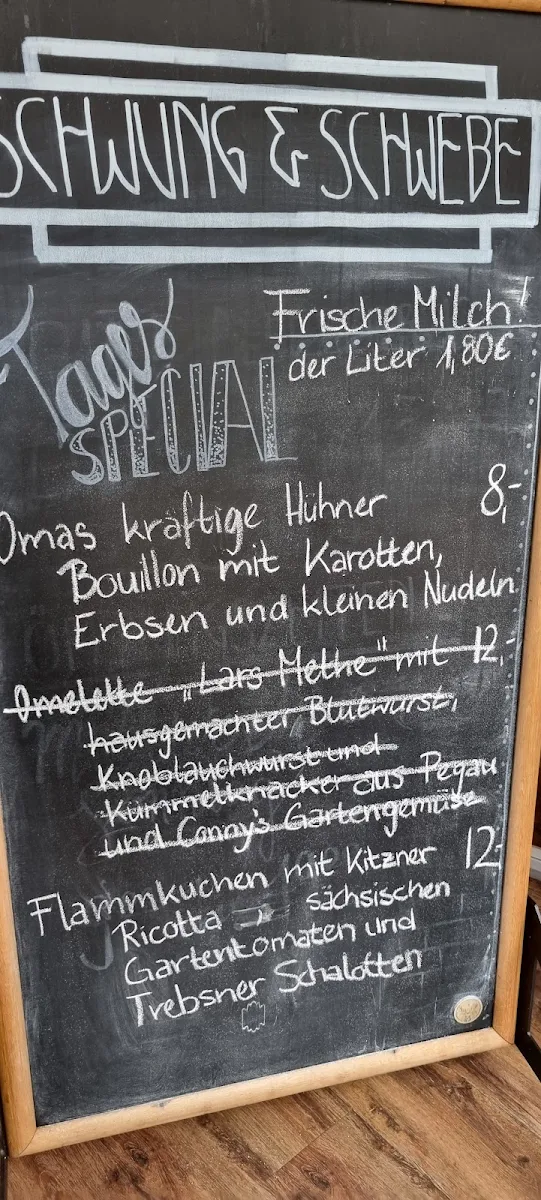 SCHWUNG & SCHWEBE
Tages
SPECIAL
Frische Milch!
der Liter 1,80€
Omas kräftige Hühner 8,-
Bouillon mit Karotten,
Erbsen und kleinen Nudeln
Omelette „Lars Methe" mit 12,-
hausgemachter Blutwurst,
Knoblauchwurst und
Kümmelknacker aus Pegau
und Conny's Gartengemüse
Flammkuchen mit Kitzner 12,-
Ricotta sächsischen
Gartentomaten und
Trebsner Schalotten